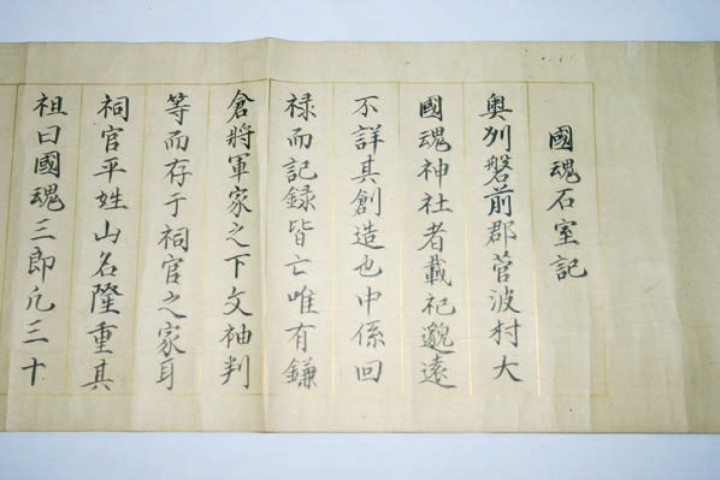 國魂石室記
奥州磐前郡菅波村大
國魂神社者載祀邈遠
不詳其創造也中係回
祿而記録皆亡唯有鎌
倉將軍家之下文袖判
等而存于祠官之家耳
祠官平姓山名隆重其
祖曰國魂三郎凡三十